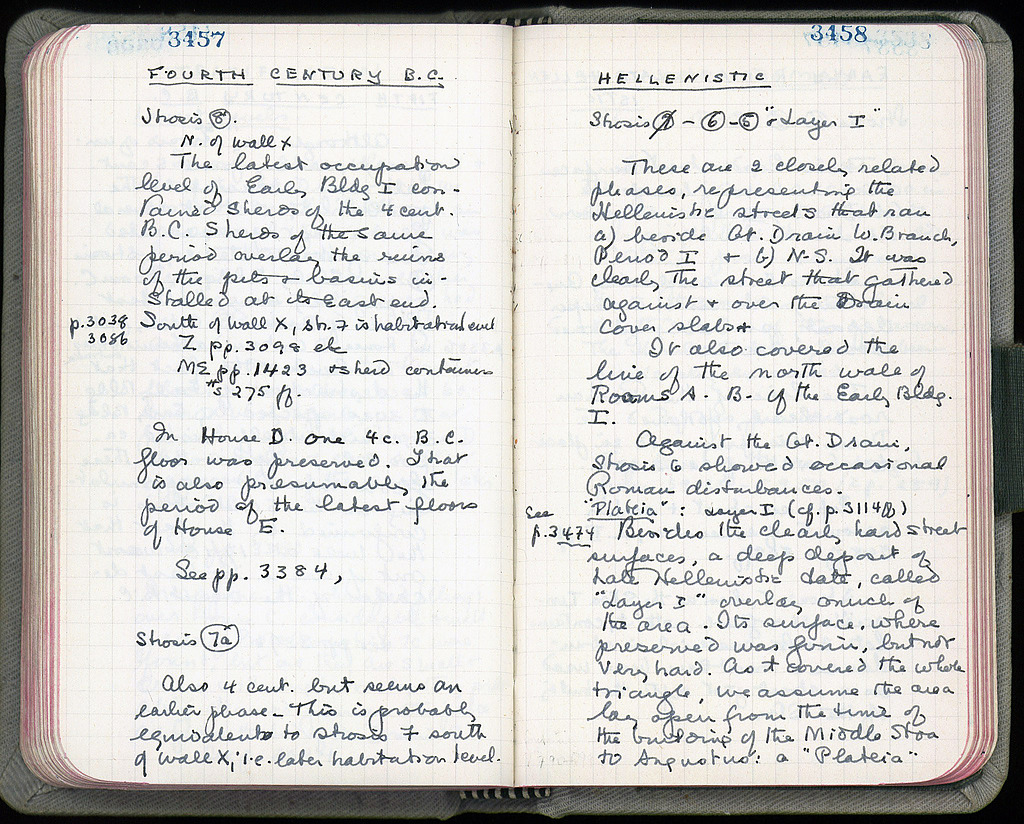 3457
FOURTH CENTURY B.C.
Strosis 8.
N. of wall X
The latest occupation
level of Early Bldg I con-
tained sherds of the 4 cent.
B.C. Sherds of the same
period overlay the ruins
of the pits + basins in-
stalled at its East end.
p.3038 South of wall X, str. 7 is habitation level
3086 Σ pp. 3098 etc
ΜΣ pp. 1423 + sherd containers
#s 275 ff.
In House D. one 4 c. B.C.
floor was preserved. That
is also presumably the
period of the latest floors
of House E.
See pp. 3384,
Strosis 7a
Also 4 cent. but seems an
earlier phase - This is probably
equivalent to strosis 7 south
of wall X; i.e. later habitation level.
3458
HELLENISTIC
Strosis 7 - 6 - 5 "& Layer I"
These are 2 closely related
phases, representing the
Hellenistic streets that ran
a) beside Gt. Drain W. Branch,
Period I + b) N-S. It was
clearly the street that gathered
against + over the Drain
cover slabs
It also covered the
line of the north wall of
Rooms A. B. of the Early Bldg.
I.
Against the Gt. Drain,
Strosis 6 showed occasional
Roman disturbances.
See "Plateia": Layer I (cf. p. 3114ff)
p.3474 Besides the clearly hard street
surfaces, a deep deposit of
Late Hellenistic date, called
"Layer I" overlay much of
the area. Its surface, where
preserved was firm, but not
very hard. As it covered the whole
triangle, we assume the area
lay open from the time of
the building of the Middle Stoa
to Augustus: a "Plateia"